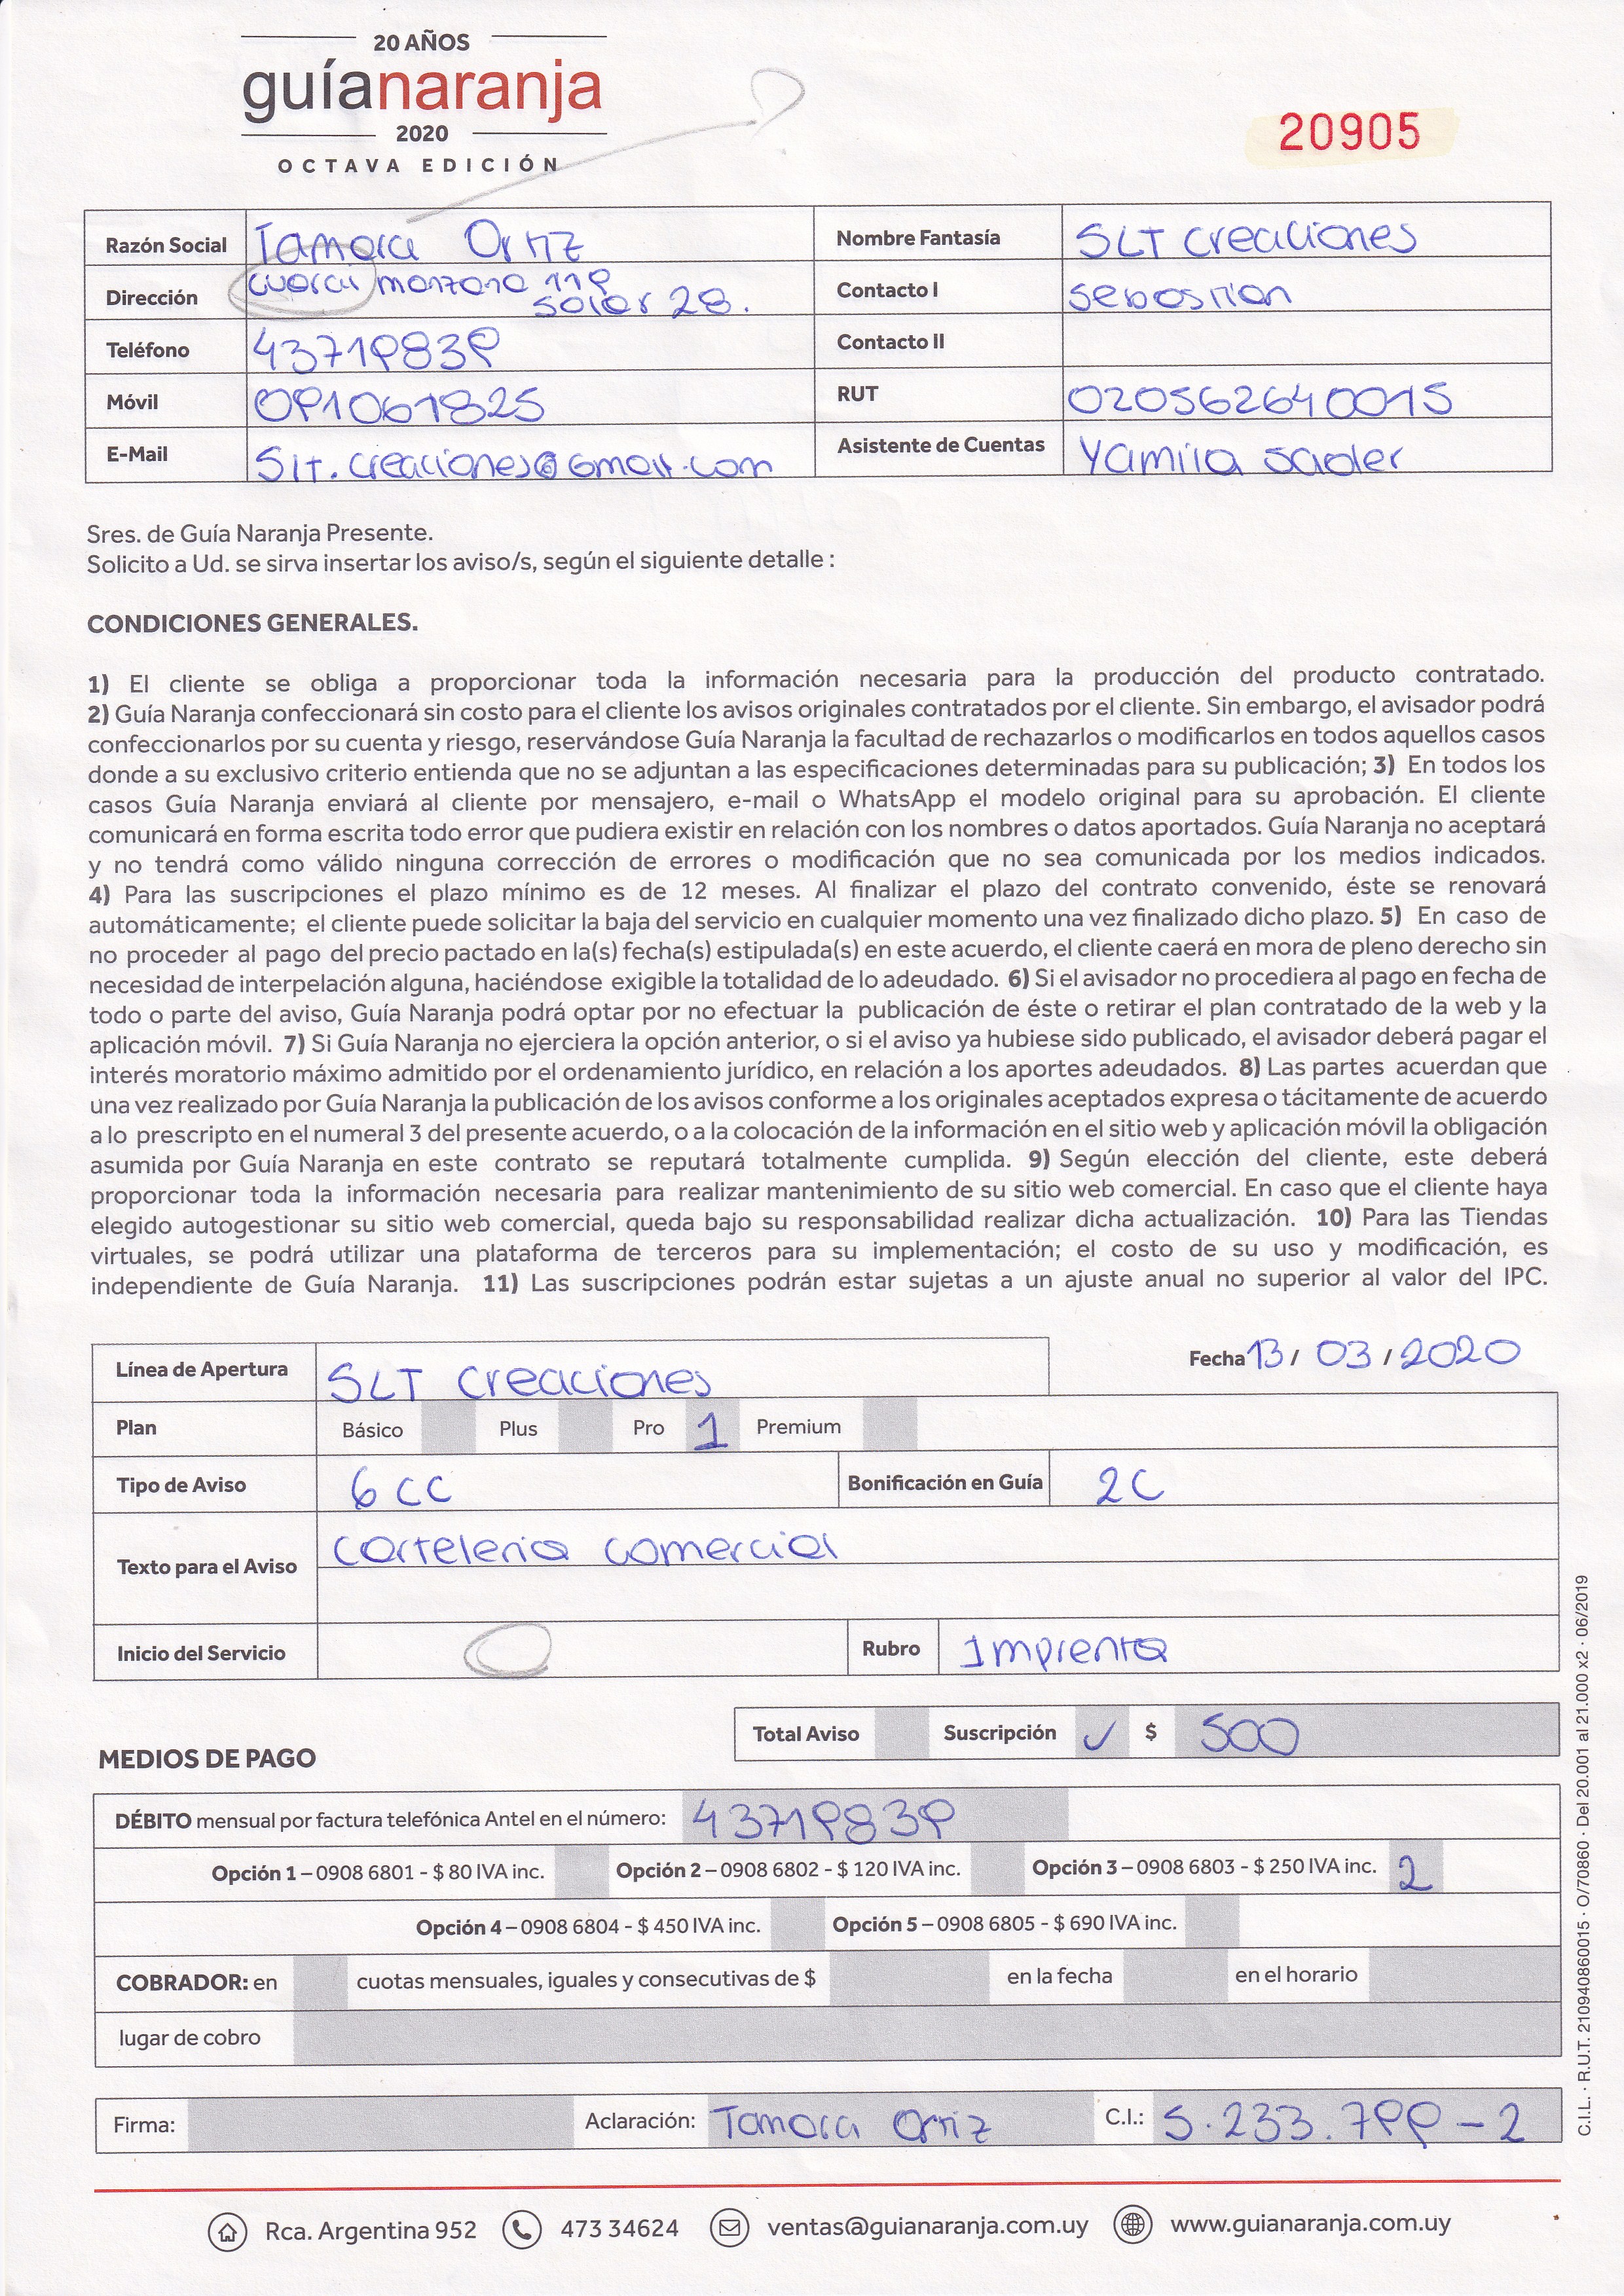 20 AÑOS
guíanaranja
2020
OCTAVA EDICIÓN
20905
Razón Social Tamara Ortiz Nombre Fantasía SLT Creaciones
Dirección manzana 119 solar 28. Contacto I Sebastian
Teléfono 43719839 Contacto II
Móvil 091061825 RUT 020562640015
E-Mail Slt.creaciones@Gmail.com Asistente de Cuentas Yamila Sader
Sres. de Guía Naranja Presente.
Solicito a Ud. se sirva insertar los aviso/s, según el siguiente detalle :
CONDICIONES GENERALES.
1) El cliente se obliga a proporcionar toda la información necesaria para la producción del producto contratado.
2) Guía Naranja confeccionará sin costo para el cliente los avisos originales contratados por el cliente. Sin embargo, el avisador podrá
confeccionarlos por su cuenta y riesgo, reservándose Guía Naranja la facultad de rechazarlos o modificarlos en todos aquellos casos
donde a su exclusivo criterio entienda que no se adjuntan a las especificaciones determinadas para su publicación; 3) En todos los
casos Guía Naranja enviará al cliente por mensajero, e-mail o WhatsApp el modelo original para su aprobación. El cliente
comunicará en forma escrita todo error que pudiera existir en relación con los nombres o datos aportados. Guía Naranja no aceptará
y no tendrá como válido ninguna corrección de errores o modificación que no sea comunicada por los medios indicados.
4) Para las suscripciones el plazo mínimo es de 12 meses. Al finalizar el plazo del contrato convenido, éste se renovará
automáticamente; el cliente puede solicitar la baja del servicio en cualquier momento una vez finalizado dicho plazo. 5) En caso de
no proceder al pago del precio pactado en la(s) fecha(s) estipulada(s) en este acuerdo, el cliente caerá en mora de pleno derecho sin
necesidad de interpelación alguna, haciéndose exigible la totalidad de lo adeudado. 6) Si el avisador no procediera al pago en fecha de
todo o parte del aviso, Guía Naranja podrá optar por no efectuar la publicación de éste o retirar el plan contratado de la web y la
aplicación móvil. 7) Si Guía Naranja no ejerciera la opción anterior, o si el aviso ya hubiese sido publicado, el avisador deberá pagar el
interés moratorio máximo admitido por el ordenamiento jurídico, en relación a los aportes adeudados. 8) Las partes acuerdan que
una vez realizado por Guía Naranja la publicación de los avisos conforme a los originales aceptados expresa o tácitamente de acuerdo
a lo prescripto en el numeral 3 del presente acuerdo, o a la colocación de la información en el sitio web y aplicación móvil la obligación
asumida por Guía Naranja en este contrato se reputará totalmente cumplida. 9) Según elección del cliente, este deberá
proporcionar toda la información necesaria para realizar mantenimiento de su sitio web comercial. En caso que el cliente haya
elegido autogestionar su sitio web comercial, queda bajo su responsabilidad realizar dicha actualización. 10) Para las Tiendas
virtuales, se podrá utilizar una plataforma de terceros para su implementación; el costo de su uso y modificación, es
independiente de Guía Naranja. 11) Las suscripciones podrán estar sujetas a un ajuste anual no superior al valor del IPC.
Fecha 13 / 03 / 2020
Línea de Apertura SLT Creaciones
Plan Básico Plus Pro 1 Premium
Tipo de Aviso 6 CC Bonificación en Guía 2C
Texto para el Aviso Carteleria comercial
Inicio del Servicio Rubro Imprenta
Total Aviso Suscripción ✓ $ 500
MEDIOS DE PAGO
DÉBITO mensual por factura telefónica Antel en el número: 43719839
Opción 1 – 0908 6801 - $ 80 IVA inc. Opción 2 – 0908 6802 - $ 120 IVA inc. Opción 3 – 0908 6803 - $ 250 IVA inc. 2
Opción 4 – 0908 6804 - $ 450 IVA inc. Opción 5 – 0908 6805 - $ 690 IVA inc.
COBRADOR: en cuotas mensuales, iguales y consecutivas de $ en la fecha en el horario
lugar de cobro
Firma: Aclaración: Tamara Ortiz C.I.: 5.233.799-2
Rca. Argentina 952 473 34624 ventas@guianaranja.com.uy www.guianaranja.com.uy
C.I.L. · R.U.T. 210940860015 · O/70860 · Del 20.001 al 21.000 x2 · 06/2019